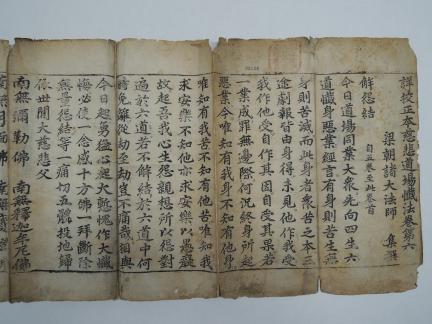 詳校正本慈悲道場懺法卷第六
梁朝諸大法師 集撰
解怨結 自五卷至此卷首
今日道場同業大衆先向四生六
道懺身惡業經言有身則苦生無
身則苦滅而此身者衆苦之本三
途劇報皆由身得未見他作我受
我作他受自作其因自受其果若
一業成罪無邊際何況終身所起
惡業今唯知有我身不知有他身
唯知有我苦不知有他苦唯知我
求安樂不知他亦求安樂以愚癡
故起吾我心生怨親想所以怨對
遍於六道若不解結於六道中何
時免離從劫至劫豈不痛哉相與
今日起勇猛心起大慚愧作大懺
悔必使一念感十方佛一拜斷除
無量怨結等一痛切五體投地歸
依世間大慈悲父
南無彌勒佛 南無釋迦牟尼佛